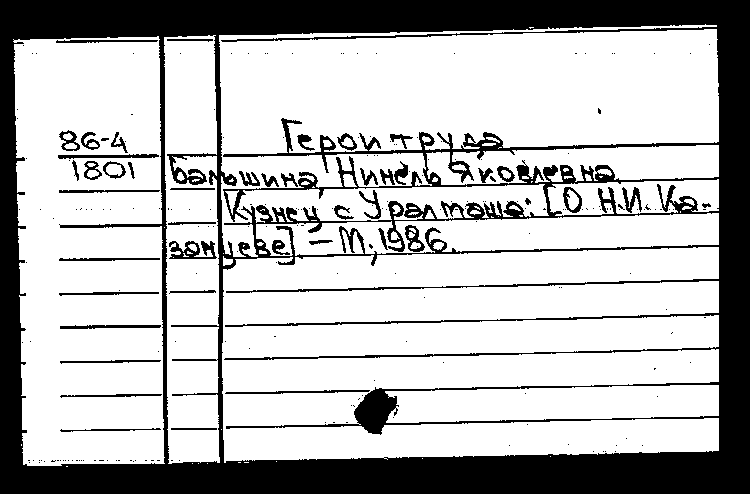 86-4 Герои труда
1801 Бальшина, Нинель Яковлевна
Кузнец с Уралмаша: [О Н.И. Ка-
занцеве]. – М., 1986.